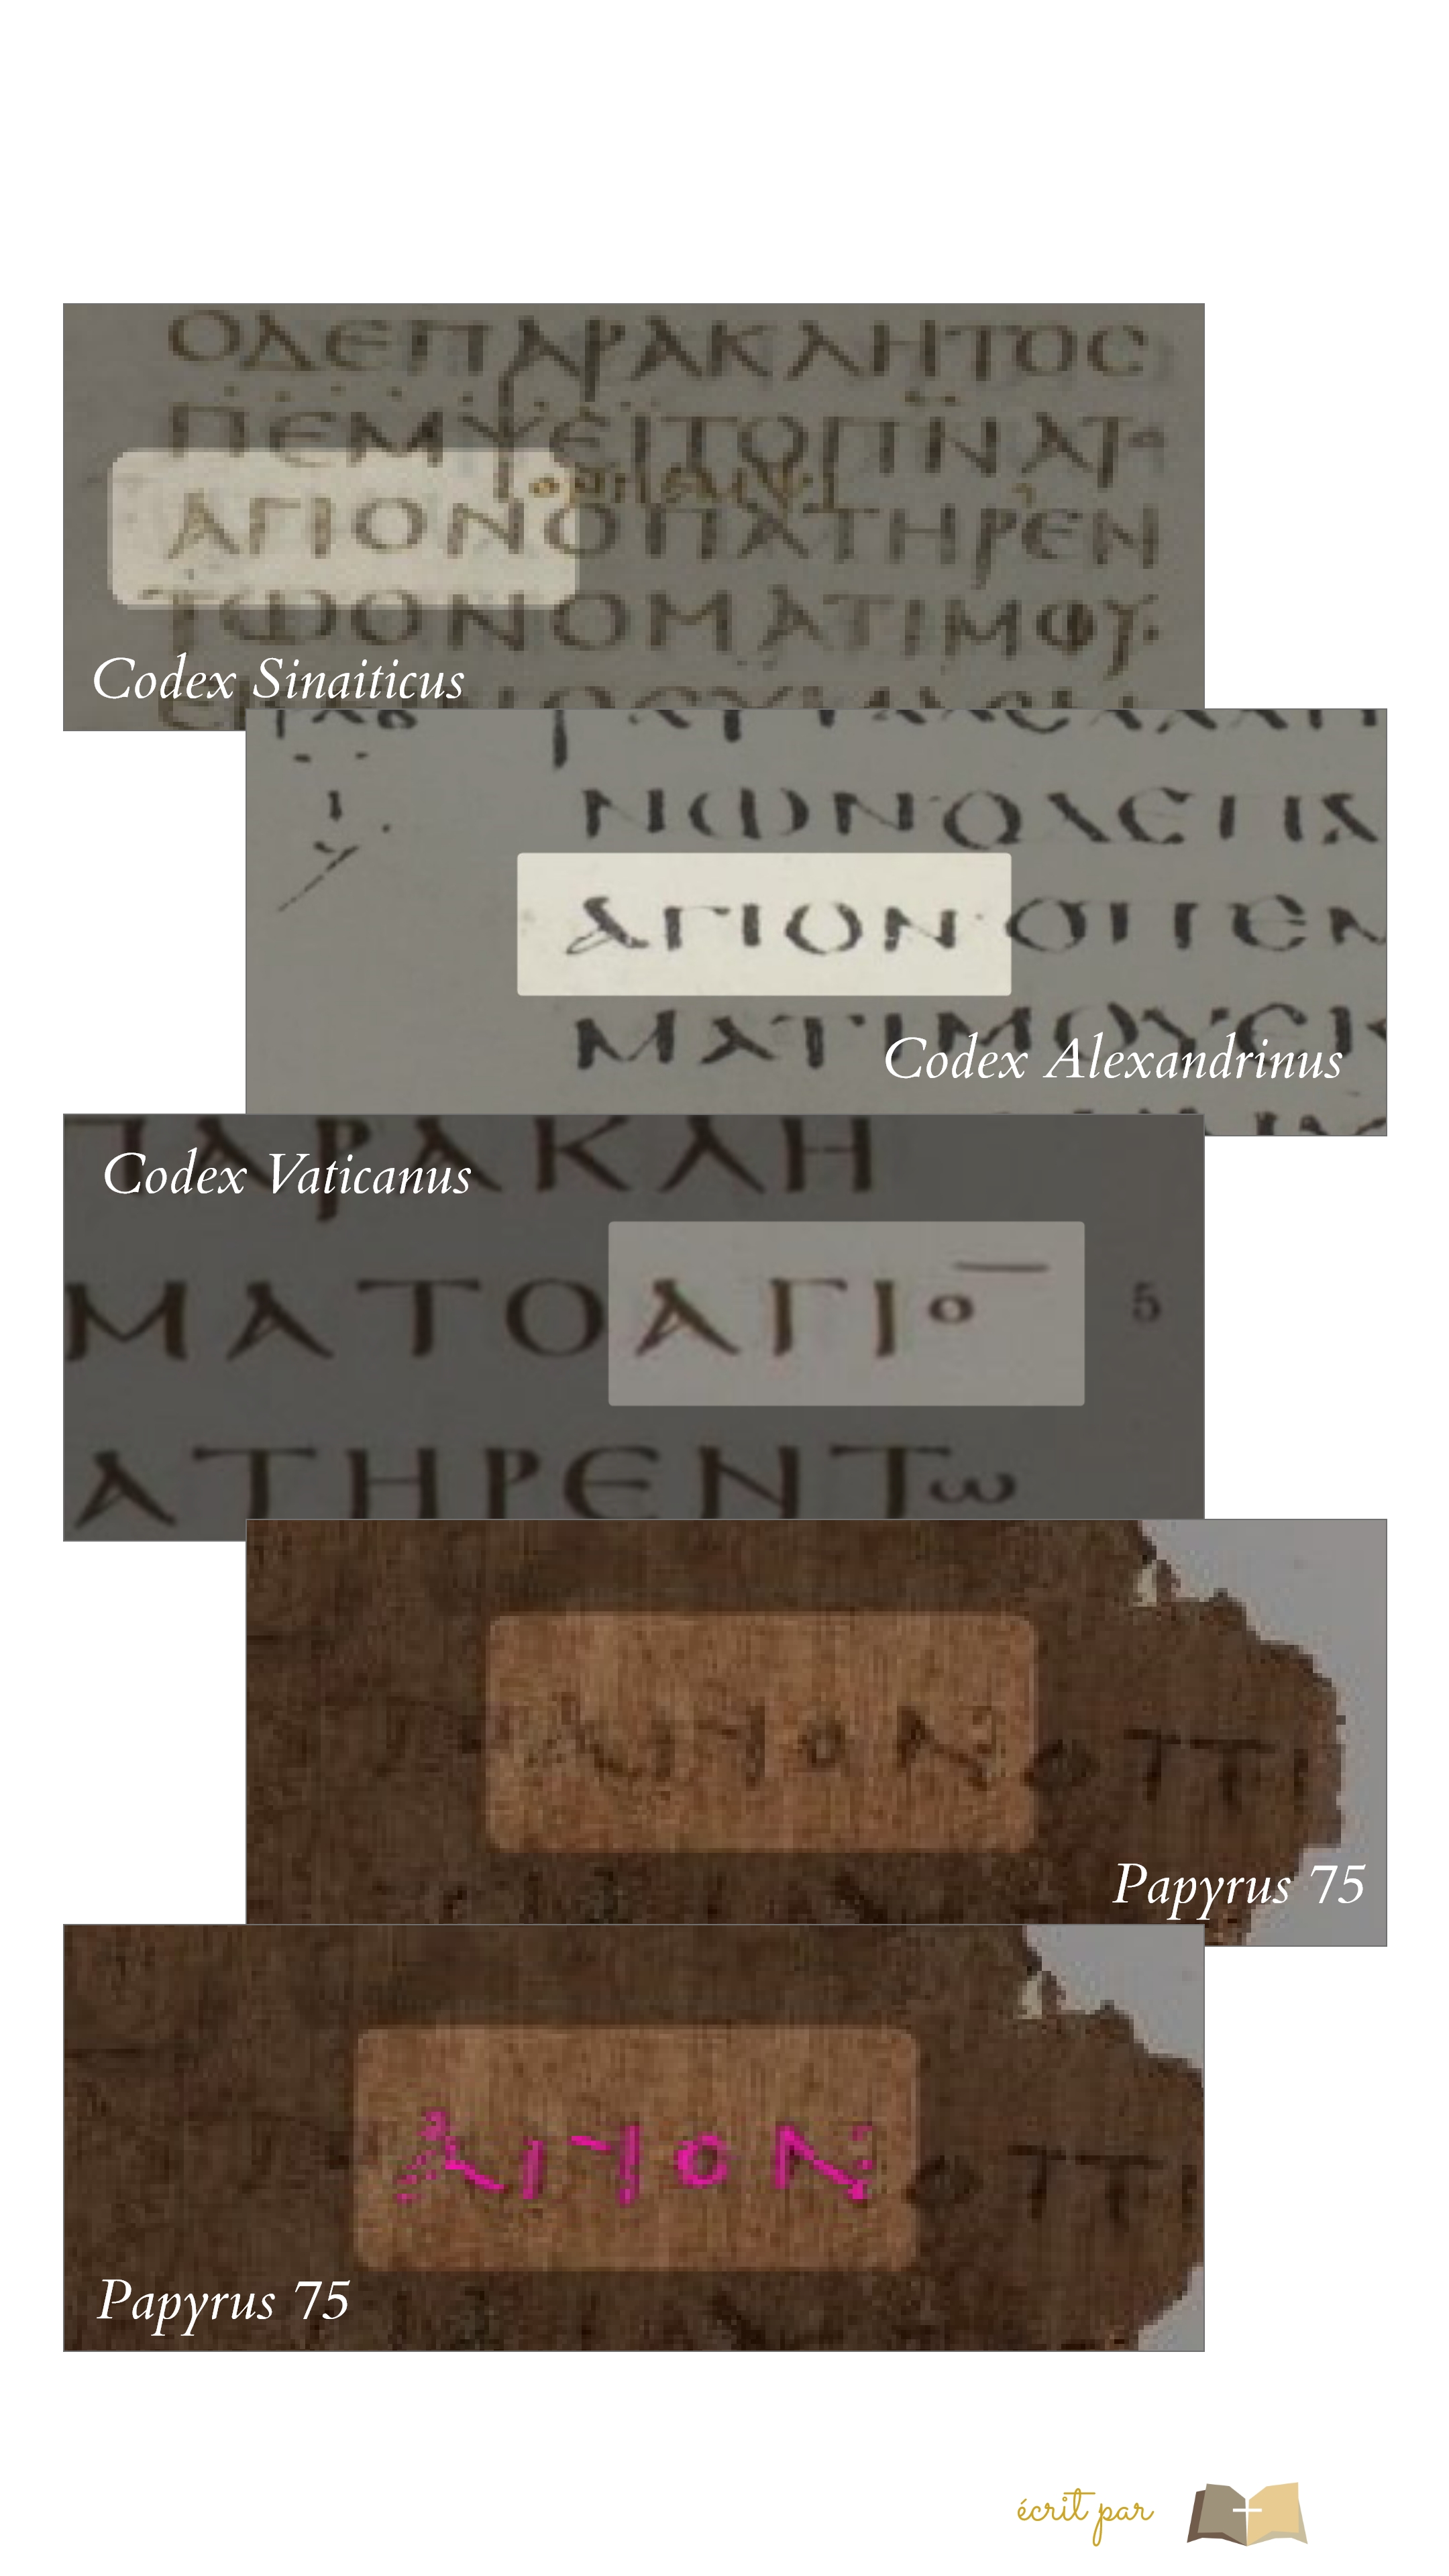 ΟΔΕΠΑΡΑΚΛΗΤΟϹ
ΠΕΜΨΕΙΤΟΠΝΑΤΟ
ΑΓΙΟΝΟΠΑΤΗΡΕΝ
ΤΩΟΝΟΜΑΤΙΜΟΥ·
Codex Sinaiticus
ΝΩΝΟΔΕΠΑ
ΑΓΙΟΝ·ΟΠΕΜ
ΜΑΤΙΜΟΥΕΚ
Codex Alexandrinus
ΠΑΡΑΚΛΗ
Codex Vaticanus
ΜΑΤΟΑΓΙΟ̅ 5
ΑΤΗΡΕΝΤω
ΑΓΙΟΝ Ο Π
Papyrus 75
ΑΓΙΟΝ Ο Π
Papyrus 75
écrit par